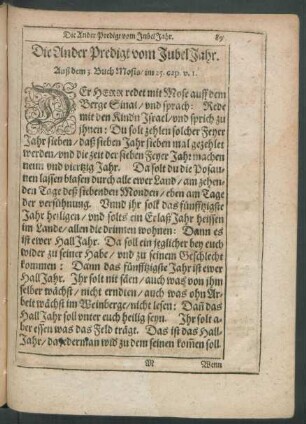 Die Ander Predigt vom Jubel Jahr. 89
Die Ander Predigt vom Jubel Jahr.
Auß dem 3 Buch Mosis/ im 25. cap. v. 1.
DEr HERR redet mit Mose auff dem
Berge Sinai/ vnd sprach: Rede
mit den Kindn Israel/ vnd sprich zu
jhnen: Du solt zehlen solcher Feyer
Jahr sieben/ daß sieben Jahr sieben mal gezehlet
werden/ vnd die zeit der sieben Feyer Jahr machen
neun vnd viertzig Jahr. Da solt du die Posau-
nen lassen blasen durch alle ewer Land/ am zehen-
den Tage deß siebenden Monden/ eben am Tage
der versühnung. Vnnd ihr solt das fünfftzigste
Jahr heiligen/ vnd solts ein Erlaß Jahr heissen
im Lande/ allen die drinnen wohnen: Dann es
ist ewer Hall Jahr. Da soll ein jeglicher bey euch
wider zu seiner Habe/ vnd zu seinem Geschlecht
kommen: Dann das fünfftzigste Jahr ist ewer
Hall Jahr. Ihr solt nit säen/ auch was von jhm
selber wächst/ nicht erndten/ auch was ohn Ar-
beit wächst im Weinberge/ nicht lesen: Dañ das
Hall Jahr soll vnter euch heilig seyn. Ihr solt a-
ber essen was das Feld trägt. Das ist das Hall-
Jahr/ da jederman wid' zu dem seinen kom̃en soll.
M Wenn